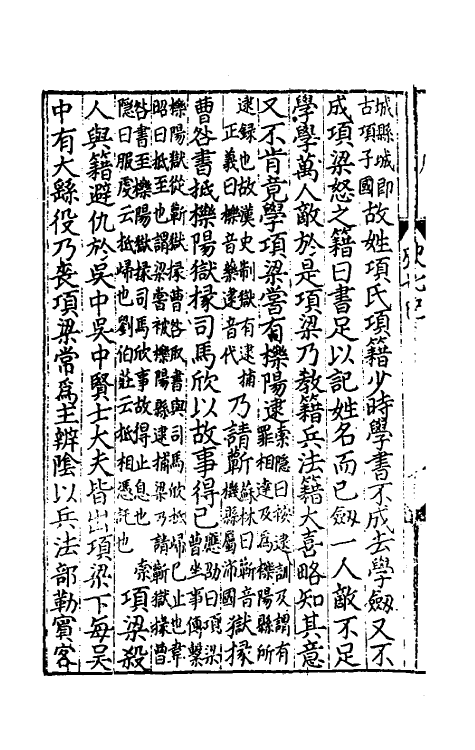 城縣城即
古項子國
故姓項氏項籍少時學書不成去學劔又不
成項梁怒之籍曰書足以記姓名而已劔一人敵不足
學學萬人敵於是項梁乃敎籍兵法籍大喜略知其意
又不肯竟學項梁嘗有櫟陽逮
索隱曰按逮訓及謂有
罪相連及為櫟陽縣所
逮録也故漢史制獄有逮捕
正義曰櫟音藥逮音代
乃請蘄
蘇林曰蘄音
機縣屬沛國
獄掾
曹咎書抵櫟陽獄掾司馬欣以故事得已
應劭曰項梁
曾坐事傳繫
櫟陽獄從蘄獄掾曹咎取書與司馬欣抵歸已止也韋
昭曰抵至也謂梁嘗被櫟陽縣逮捕梁乃請蘄獄掾曹
咎書至櫟陽獄掾司馬欣事故得止息也 索
隱曰服虔云抵歸也劉伯莊云抵相憑託也
項梁殺
人與籍避仇於吳中吳中賢士大夫皆出項梁下每吳
中有大繇役乃喪項梁常爲主辨陰以兵法部勒賓客